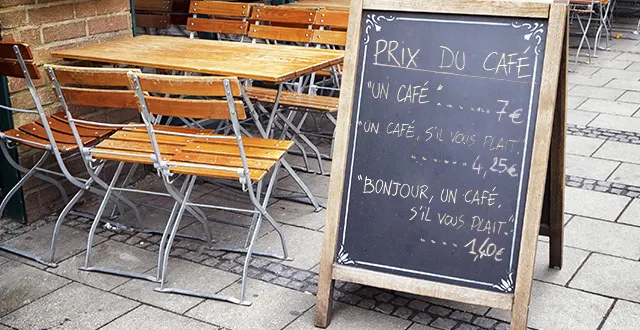 PRIX DU CAFÉ
"UN CAFÉ" ....... 7€
"UN CAFÉ, S'IL VOUS PLAIT"
....... 4,25€
"BONJOUR, UN CAFÉ,
S'IL VOUS PLAIT."
..... 1,40€